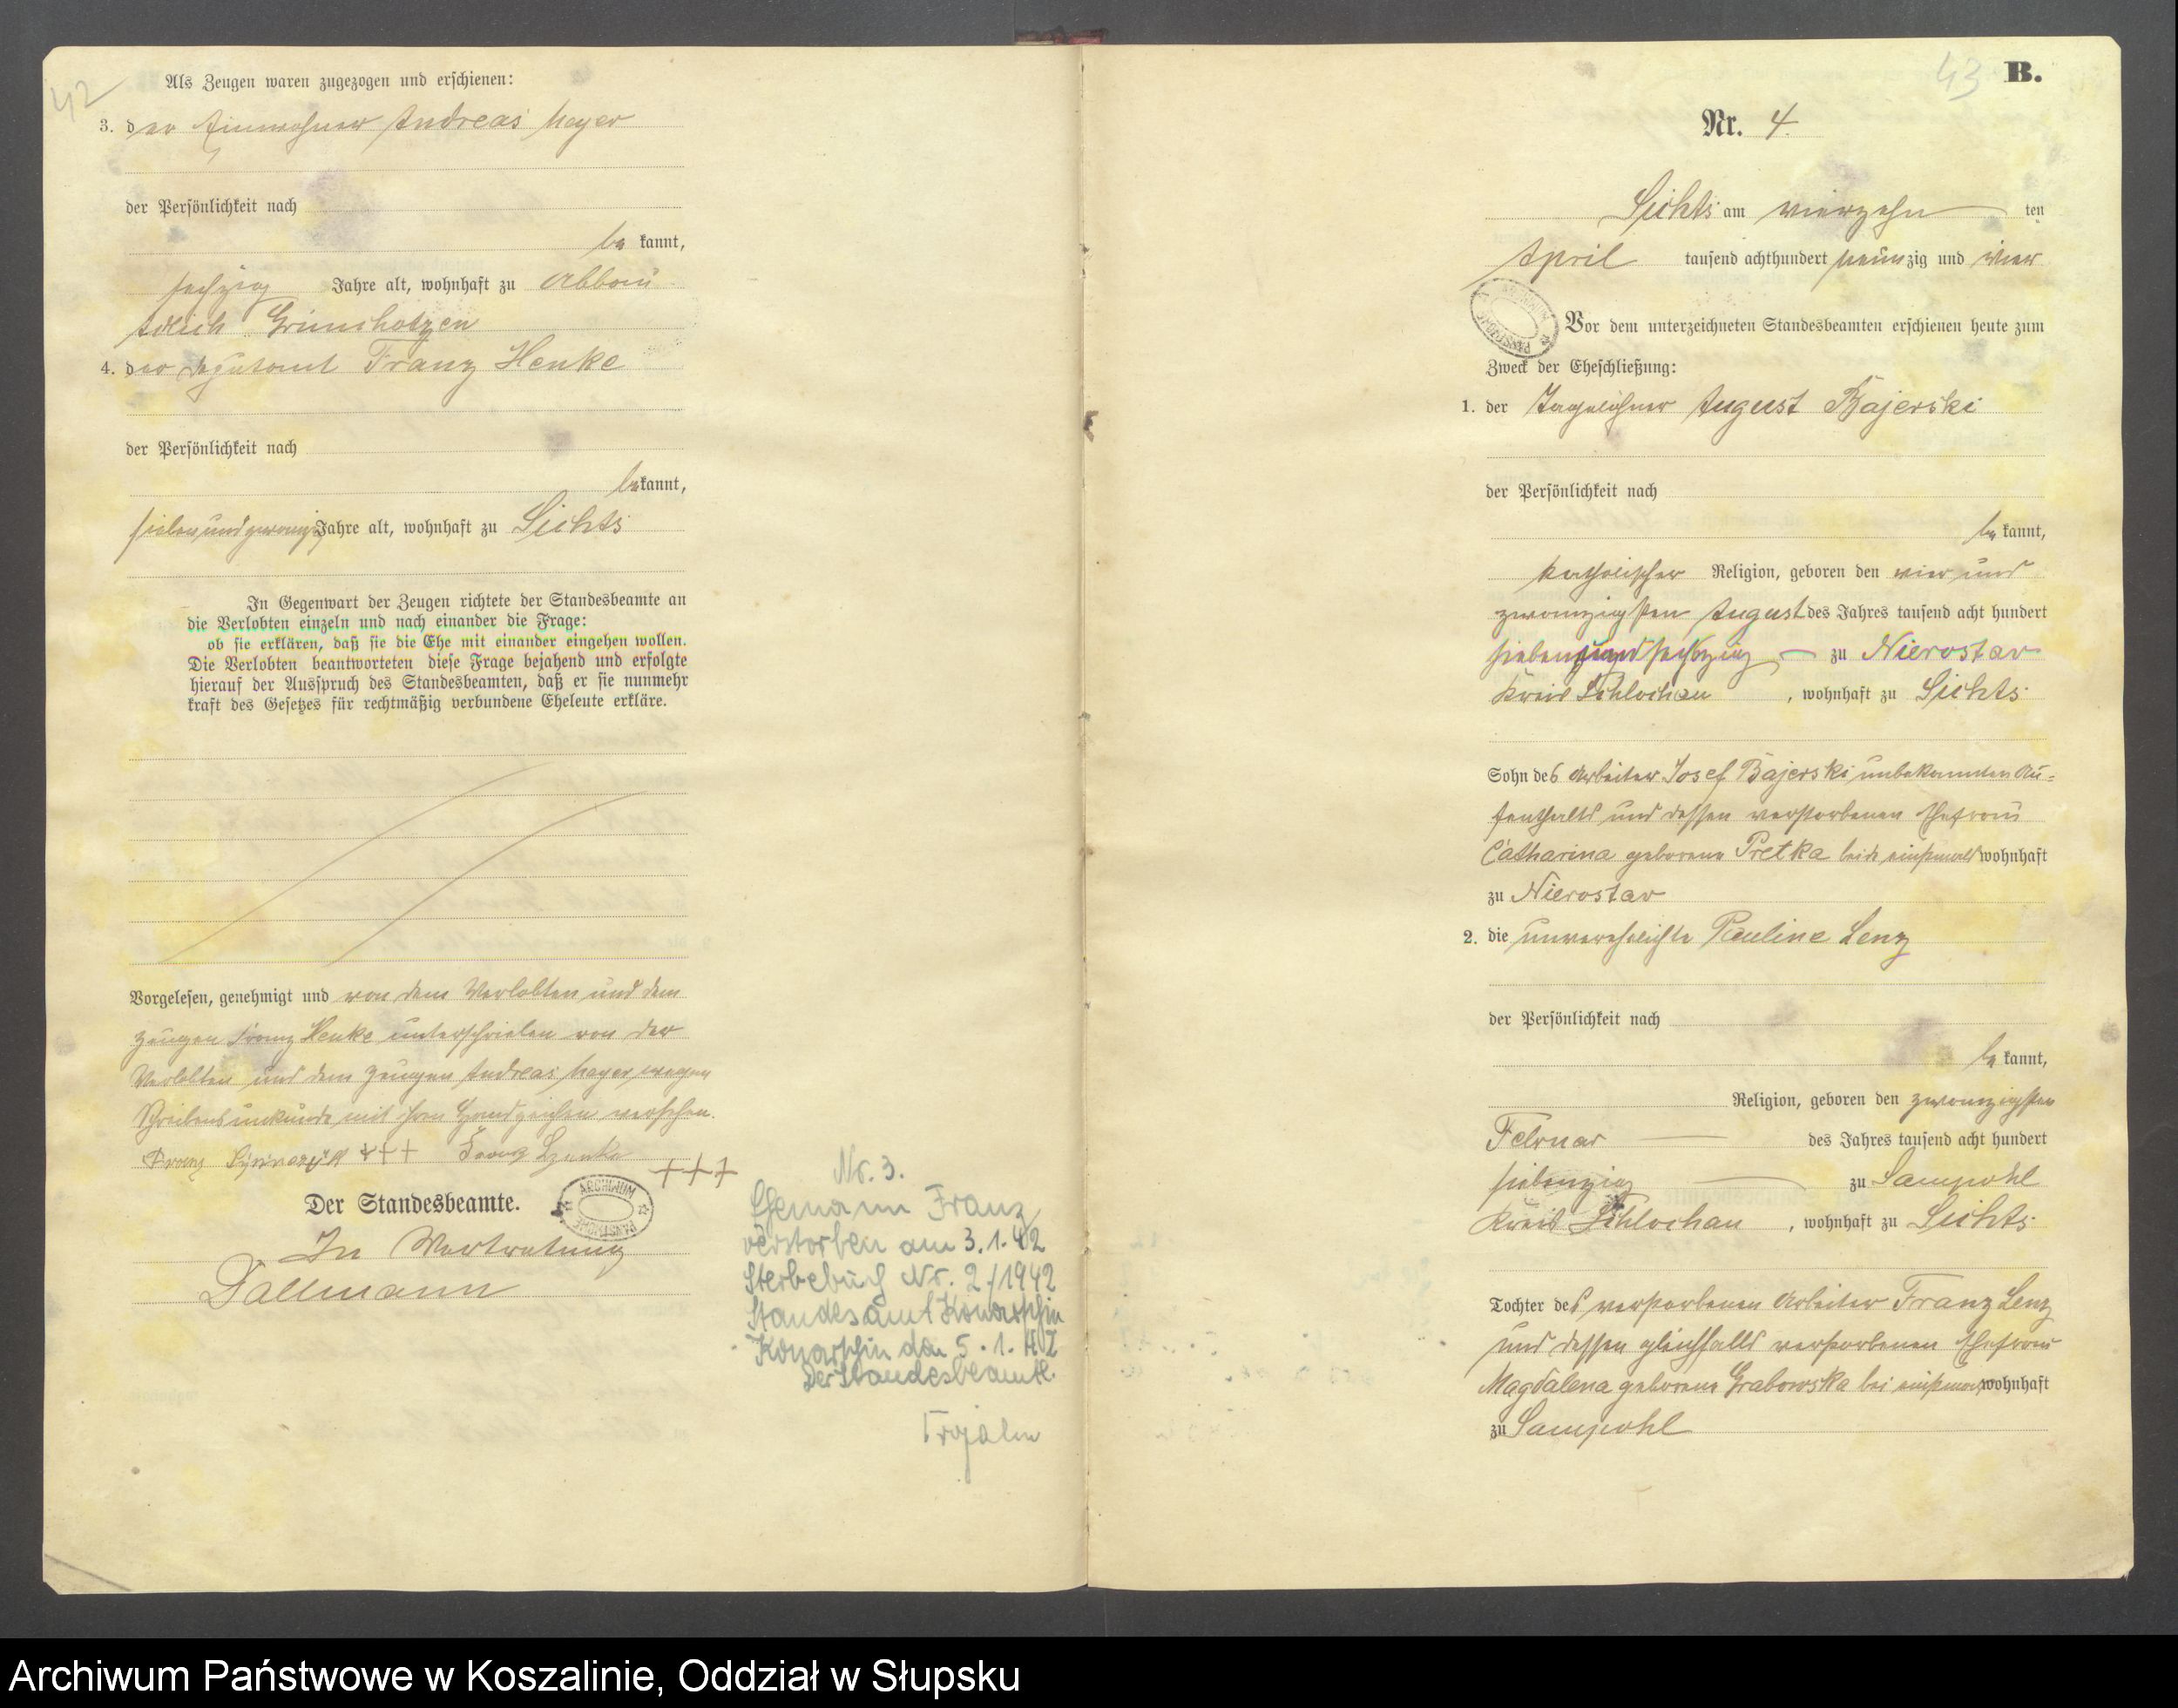 42
Als Zeugen waren zugezogen und erschienen:
3. der Einwohner Andreas Meyer
der Persönlichkeit nach
be kannt,
sechzig Jahre alt, wohnhaft zu Abbau
Adlich Grünchotzen
4. der Franz Henke
der Persönlichkeit nach
bekannt,
siebenundzwanzig Jahre alt, wohnhaft zu Lichts
In Gegenwart der Zeugen richtete der Standesbeamte an
die Verlobten einzeln und nach einander die Frage:
ob sie erklären, daß sie die Ehe mit einander eingehen wollen.
Die Verlobten beantworteten diese Frage bejahend und erfolgte
hierauf der Ausspruch des Standesbeamten, daß er sie nunmehr
kraft des Gesetzes für rechtmäßig verbundene Eheleute erkläre.
Vorgelesen, genehmigt und von dem Verlobten und dem
Zeugen Franz Henke unterschrieben von der
Verlobten und dem Zeugen Andreas Meyer wegen
Schreibensunkunde mit ihren Handzeichen versehen.
Franz +++ Franz Henke +++
Der Standesbeamte.
In Vertretung
Dallmann
Nr. 3.
Ehemann Franz
verstorben am 3.1.42
Sterbebuch Nr. 2/1942
Standesamt Konarschin
Konarschin den 5.1.42
Der Standesbeamte
43
B.
Nr. 4.
Lichts am vierzehn ten
April tausend achthundert neunzig und vier
Vor dem unterzeichneten Standesbeamten erschienen heute zum
Zweck der Eheschließung:
1. der Tagelöhner August Bajerski
der Persönlichkeit nach
be kannt,
katholischer Religion, geboren den vier und
zwanzigsten August des Jahres tausend acht hundert
siebenundsechzig zu Nierostaw
Kreis Schlochau, wohnhaft zu Lichts
Sohn des Arbeiter Josef Bajerski unbekannten Au=
fenthalts und dessen verstorbenen Ehefrau
Catharina geborene Pretka beide einstmals wohnhaft
zu Nierostaw
2. die unverehelichte Pauline Lenz
der Persönlichkeit nach
be kannt,
Religion, geboren den zwanzigsten
Februar des Jahres tausend acht hundert
siebenzig zu Sampohl
Kreis Schlochau, wohnhaft zu Lichts
Tochter des verstorbenen Arbeiter Franz Lenz
und dessen gleichfalls verstorbenen Ehefrau
Magdalena geborene Grabowska bei einstmals wohnhaft
zu Sampohl
Archiwum Państwowe w Koszalinie, Oddział w Słupsku